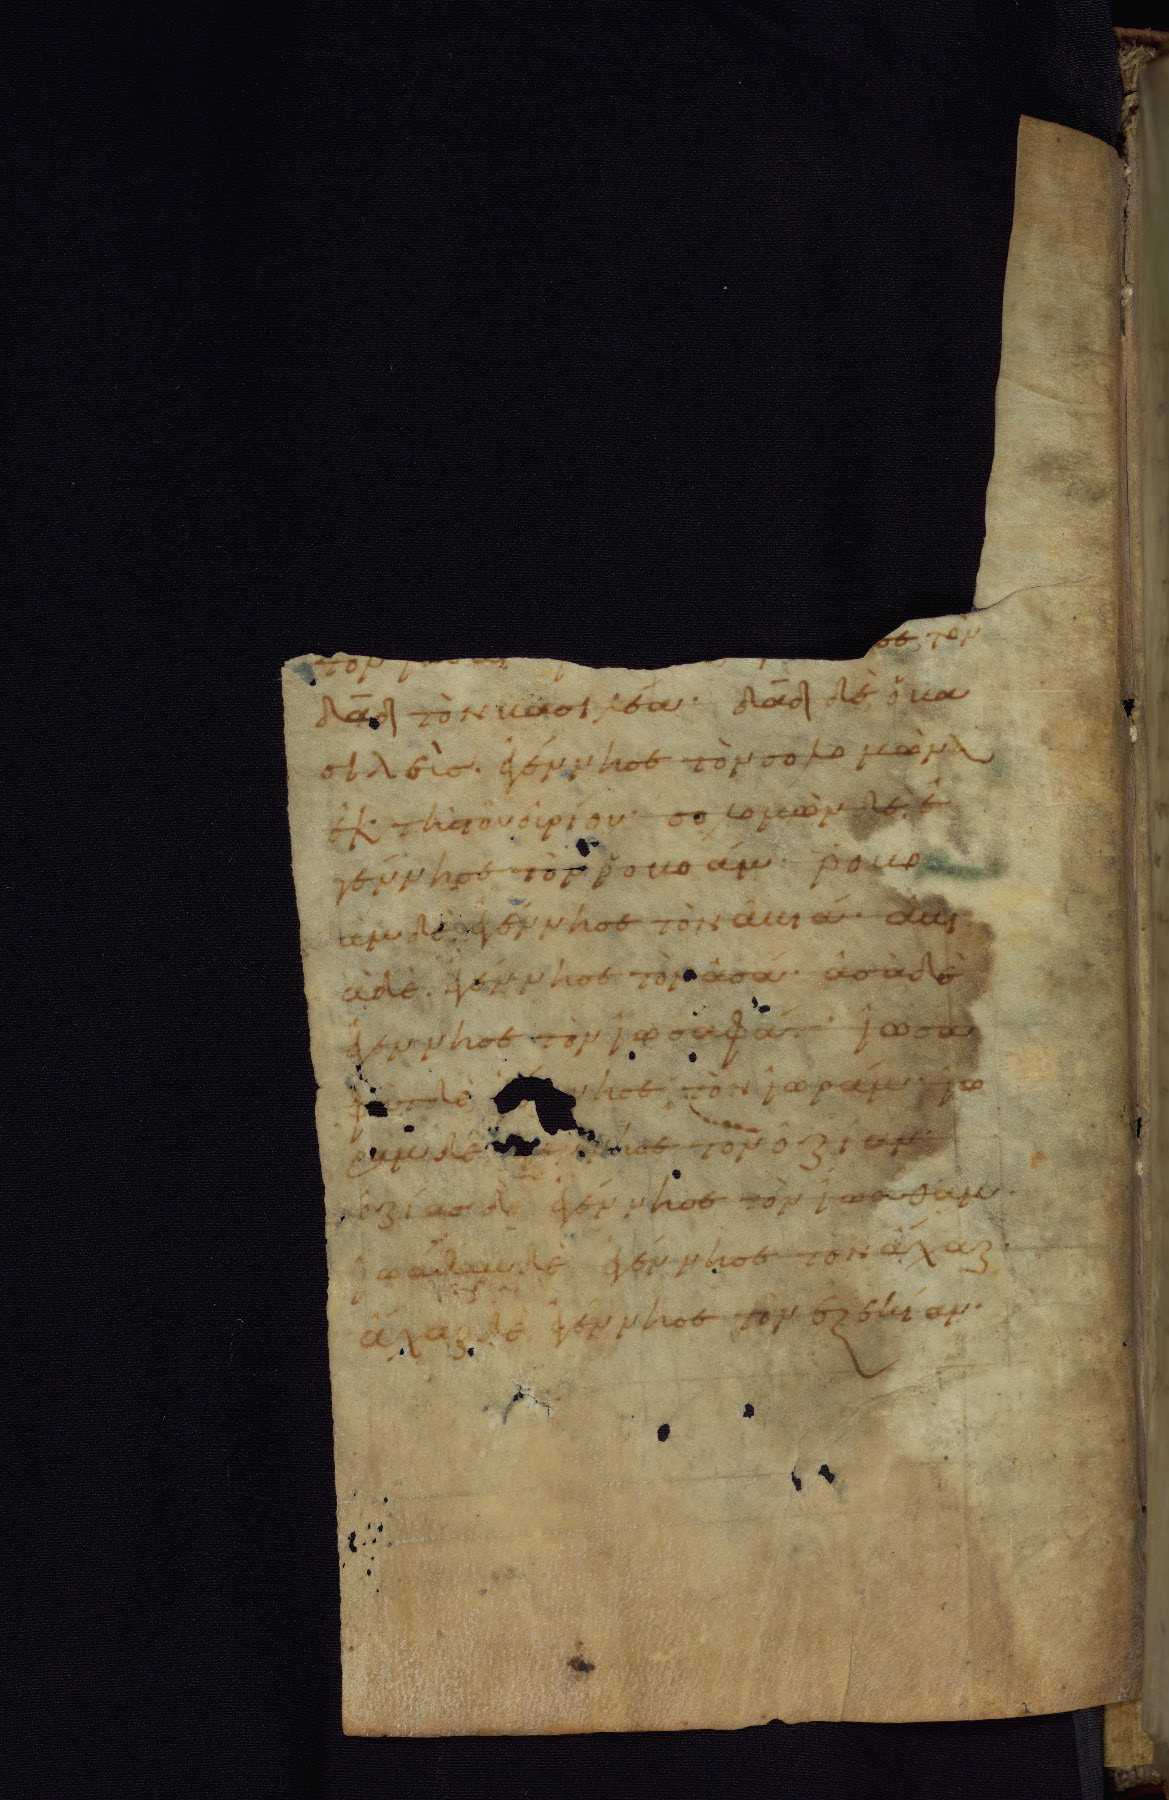 τὸν σε τὸν
δᾱδ τὸν βασιλέα· δᾱδ δὲ ὁ βα
σιλεὺσ. ἐγέννησε τὸν σολομῶντα
ἐκ τῆσ τοῦ οὐρίου· σολομὼν δὲ ἐ
γέννησε τὸν ῥοβοάμ· ῥοβο
ὰμ δὲ ἐγέννησε τὸν ἀβιά· ἀβι
ὰ δὲ. ἐγέννησε τὸν ἀσά· ἀσὰ δὲ
ἐγέννησε τὸν ἰωσαφάτ· ἰωσα
φὰτ δὲ ἐγέννησε τὸν ἰωράμ· ἰω
ρὰμ δὲ ἐγέννησε τὸν ὀζίαν·
ὀζίασ δὲ ἐγέννησε τὸν ἰωαθαμ·
ἰωάθαμ δὲ ἐγέννησε τὸν ἄχαζ·
ἄχαζ δὲ ἐγέννησε τὸν ἐζεκίαν·